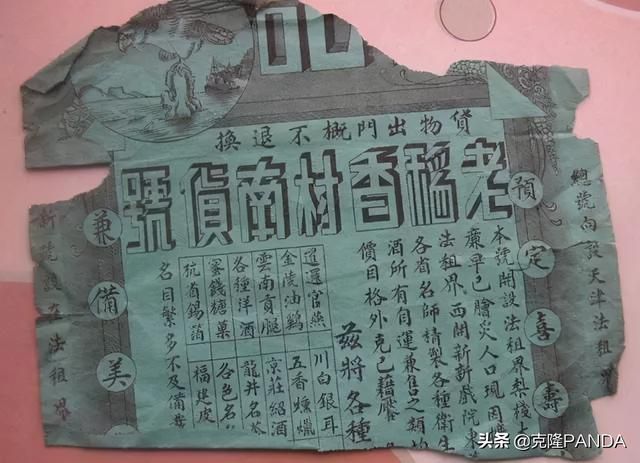 貨物出門概不退換
老稻香村南貨號
總號向設天津法租界
預定喜壽
本號開設法租界梨棧大
廉早已膾炙人口現因
法租界西開新新戲院東
各省名師精製各種衛生
酒所有自運兼售之類均
價目格外克己藉
茲將各種
暹邏官燕 川白銀耳
金陵油鷄 五香燻臘
雲南貢腿 京莊紹酒
各種洋酒 龍井名茶
蜜餞糖菓 各色名
杭省錫箔 福建皮
名目繁多不及備載
兼備美
新號設在法租界
头条 @克隆PANDA